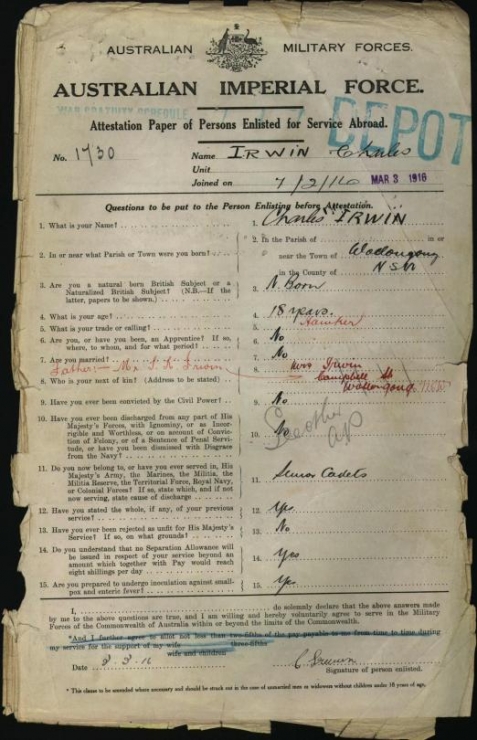 AUSTRALIAN MILITARY FORCES.
AUSTRALIAN IMPERIAL FORCE.
WAR GRATUITY SCHEDULE
DEPOT
Attestation Paper of Persons Enlisted for Service Abroad.
No. 1730 Name IRWIN Charles
Unit
Joined on 7/2/16 MAR 3 1916
Questions to be put to the Person Enlisting before Attestation.
1. What is your Name? 1. Charles IRWIN
2. In or near what Parish or Town were you born? 2. In the Parish of in or
near the Town of Wollongong
in the County of NSW
3. Are you a natural born British Subject or a
Naturalized British Subject? (N.B.—If the
latter, papers to be shown.) 3. N. Born
4. What is your age? 4. 18 years.
5. What is your trade or calling? 5. Hawker
6. Are you, or have you been, an Apprentice? If so,
where, to whom, and for what period? 6. No
7. Are you married? 7. No
Father:— Mr S. K. Irwin
8. Who is your next of kin? (Address to be stated) 8. Mrs Irwin
Campbell St
Wollongong.
9. Have you ever been convicted by the Civil Power? 9. No
10. Have you ever been discharged from any part of His
Majesty's Forces, with Ignominy, or as Incor-
rigible and Worthless, or on account of Convic-
tion of Felony, or of a Sentence of Penal Servi-
tude, or have you been dismissed with Disgrace
from the Navy? 10. No
See other
11. Do you now belong to, or have you ever served in, His
Majesty's Army, the Marines, the Militia, the
Militia Reserve, the Territorial Force, Royal Navy,
or Colonial Forces? If so, state which, and if not
now serving, state cause of discharge 11. Senior Cadets
12. Have you stated the whole, if any, of your previous
service? 12. Yes
13. Have you ever been rejected as unfit for His Majesty's
Service? If so, on what grounds? 13. No
14. Do you understand that no Separation Allowance will
be issued in respect of your service beyond an
amount which together with Pay would reach
eight shillings per day 14. Yes
15. Are you prepared to undergo inoculation against small-
pox and enteric fever? 15. Yes
I, do solemnly declare that the above answers made
by me to the above questions are true, and I am willing and hereby voluntarily agree to serve in the Military
Forces of the Commonwealth of Australia within or beyond the limits of the Commonwealth.
*And I further agree to allot not less than two-fifths of the pay payable to me from time to time during
three-fifths
my service for the support of my wife
wife and children
Date 3.3.16 C Irwin
Signature of person enlisted.
* This clause to be amended where necessary and should be struck out in the case of unmarried men or widowers without children under 18 years of age.